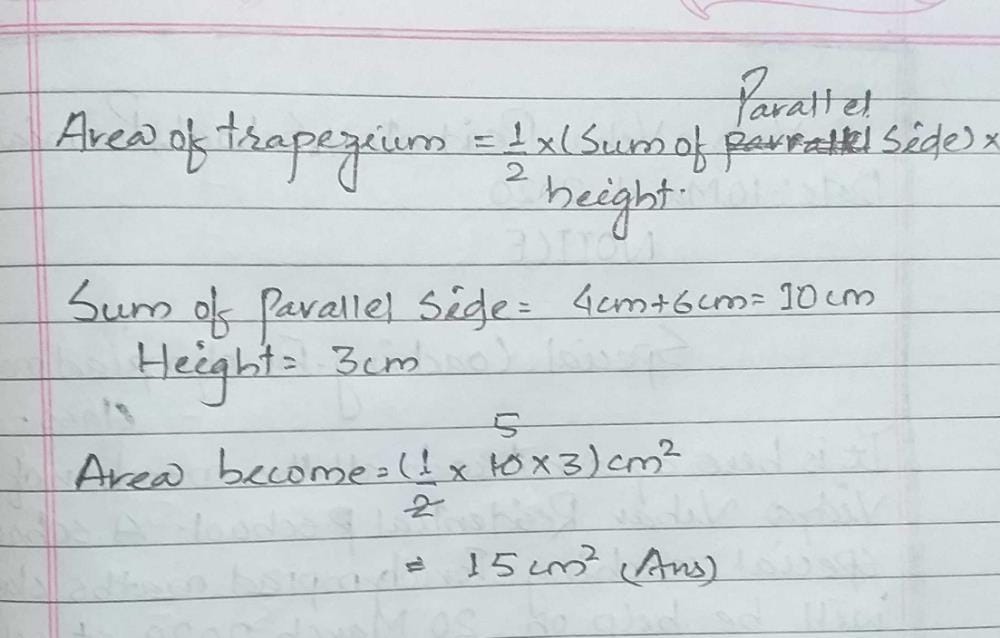 Area of trapezium = 1/2 × (Sum of Parallel Side) ×
height.
Sum of Parallel Side = 4cm+6cm=10cm
Height = 3cm
Area become = (1/2 × 10 5 × 3) cm²
= 15 cm² (Ans)